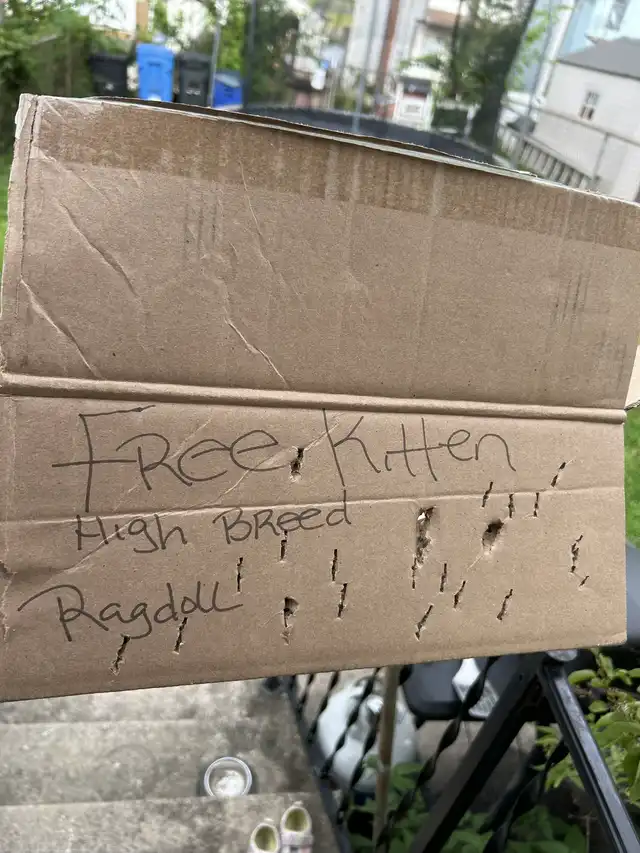 FRee Kitten
High BReed
Ragdoll